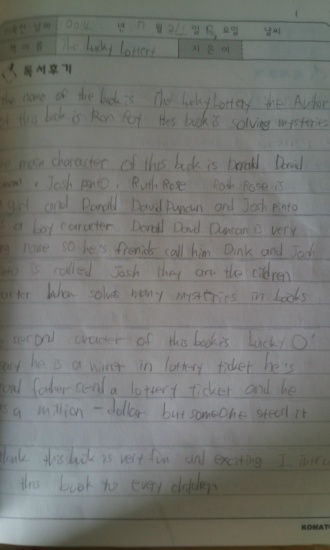 년 월 일 요일 날씨
The Lucky Lottery 지은이
독서후기
name of the book is The lucky Lottery the Author
of this book is Ron Roy this book is solving mysteries
main character of this book is Donald David
Josh pinto, Ruth Rose. Ruth Rose is
girl and Donald David Duncan and Josh Pinto
a boy caracter Donald David Duncan is very
name so he's friends call him Dink and Josh
is called Josh they are the
When solve many mysteries in books
second character of this book is Lucky O'
he is a winer in lottery ticket he's
father send a lottery ticket and he
a million-dollar but someone steal it
this book is very fun and exciting I
this book to every children